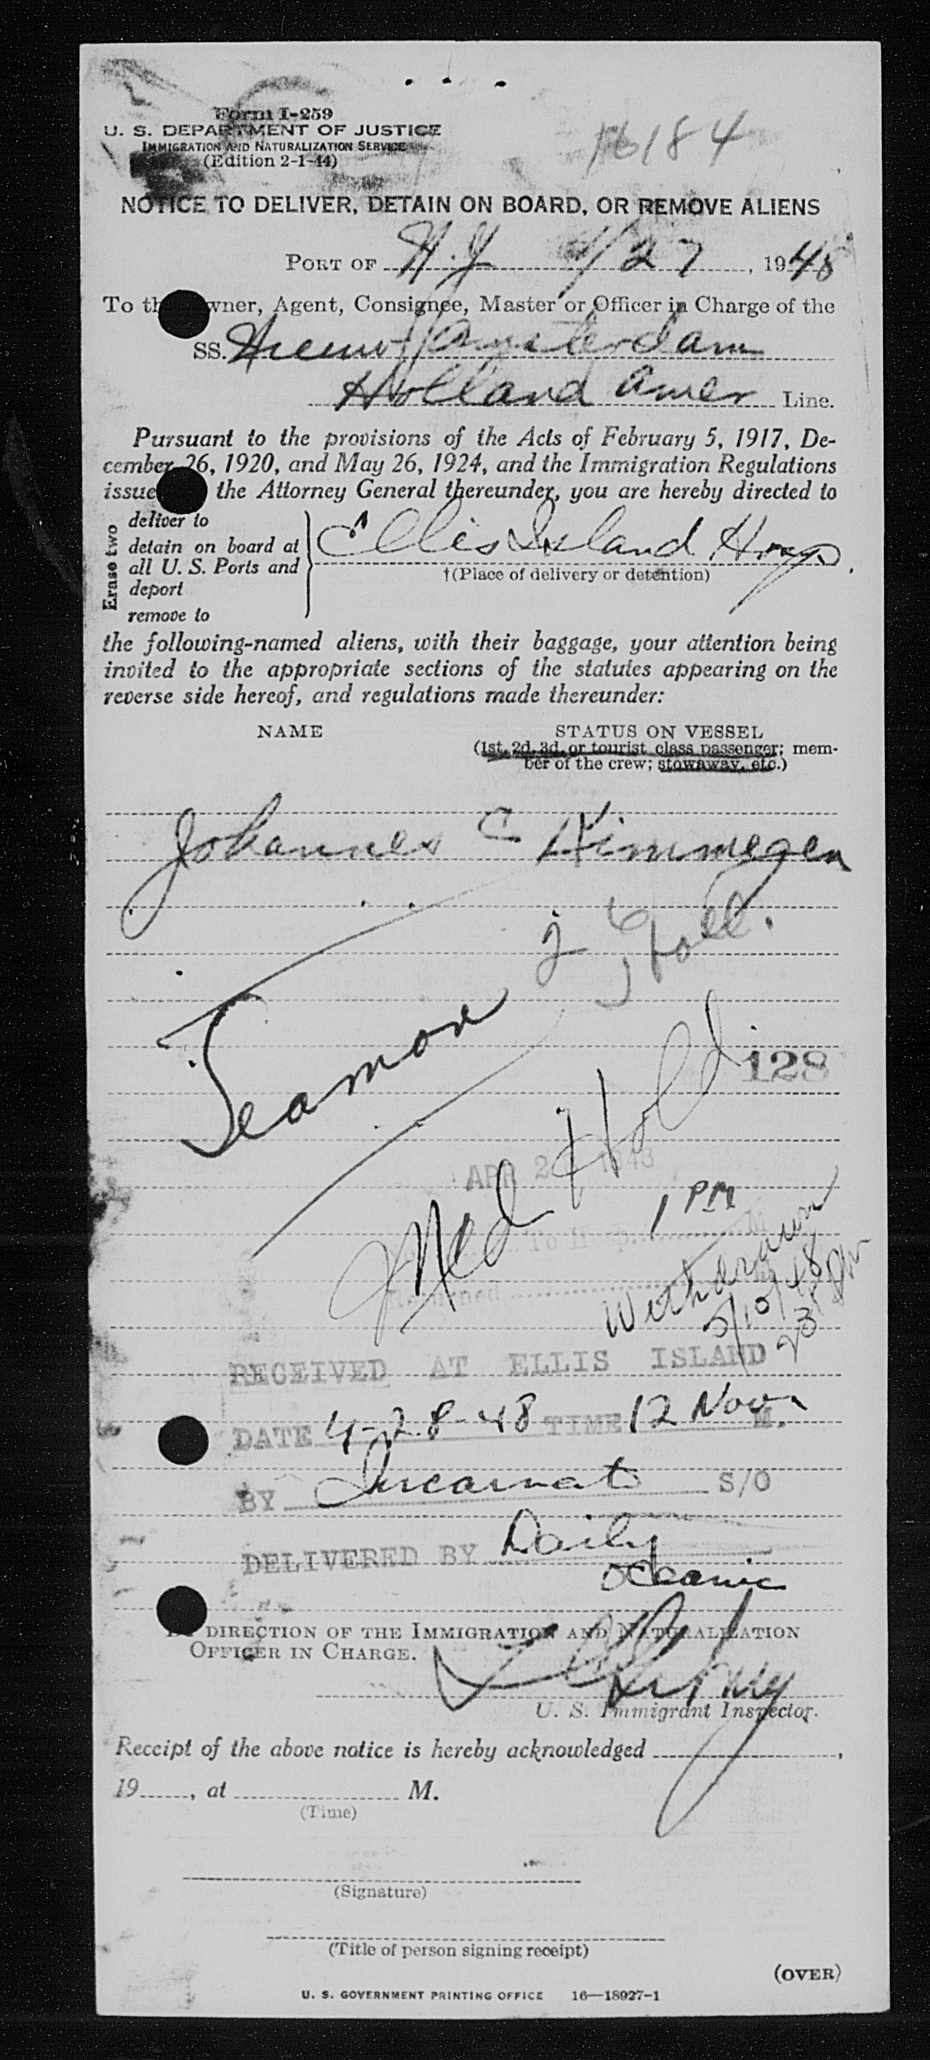 Form I-259
U. S. DEPARTMENT OF JUSTICE
IMMIGRATION AND NATURALIZATION SERVICE
(Edition 2-1-44)
16184
NOTICE TO DELIVER, DETAIN ON BOARD, OR REMOVE ALIENS
PORT OF N.Y. 4/27, 1948
To the Owner, Agent, Consignee, Master or Officer in Charge of the
SS. Nieuw Amsterdam
Holland Amer Line.
Pursuant to the provisions of the Acts of February 5, 1917, De-
cember 26, 1920, and May 26, 1924, and the Immigration Regulations
issued the Attorney General thereunder, you are hereby directed to
Erase two
deliver to
detain on board at
all U. S. Ports and
deport
remove to
Ellis Island Hosp.
†(Place of delivery or detention)
the following-named aliens, with their baggage, your attention being
invited to the appropriate sections of the statutes appearing on the
reverse side hereof, and regulations made thereunder:
NAME STATUS ON VESSEL
(1st, 2d, 3d, or tourist class passenger; mem-
ber of the crew; stowaway, etc.)
Johannes C Kimmegen
Holl.
Seaman
128
Med Hold
APR 2
1 PM
Withdrawn
5/10/48
RECEIVED AT ELLIS ISLAND
DATE 4-28-48 TIME 12 Noon M.
BY Incarnato S/O
DELIVERED BY Daily
Oceanic
DIRECTION OF THE IMMIGRATION AND NATURALIZATION
OFFICER IN CHARGE.
U. S. Immigrant Inspector.
Receipt of the above notice is hereby acknowledged ,
19 , at M.
(Time)
(Signature)
(Title of person signing receipt)
(OVER)
U. S. GOVERNMENT PRINTING OFFICE 16—18927-1